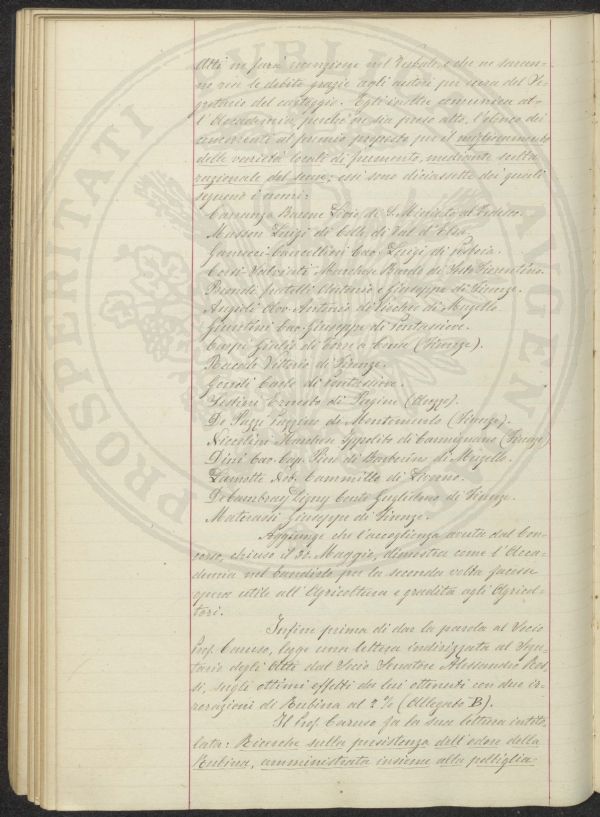 Atti ne farà menzione nel Verbale, e che ne saran-
no rese le debite grazie agli autori per cura del Se-
gretario del carteggio. Egli inoltre comunica al-
l'Accademia, perchè ne sia preso atto, l'elenco dei
concorrenti al premio proposto per il miglioramento
delle varietà locali di frumento, mediante scelta
razionale del seme; essi sono diciassette dei quali
seguono i nomi:
Carranza Barone Livio di S. Miniato al Tedesco.
Masson Luigi di Colle di Val d'Elsa.
Ganucci Cancellieri Cav. Luigi di Pistoia.
Corsi Salviati Marchese Bardo di Sesto Fiorentino.
Biondi fratelli Antonio e Giuseppe di Firenze.
Angioli Avv. Antonio di Vicchio di Mugello.
Giuntini Cav. Giuseppe di Pontassieve.
Carpi Giulio di Torre a Cona (Firenze).
Vittorio di Firenze.
Carlo di Pontassieve.
Ernesto di (Arezzo).
De Pazzi Pazzino di Montemurlo (Firenze).
Niccolini Marchese Ippolito di Carmignano (Firenze)
Dini Cav. Cap. Piero di Barberino di Mugello.
Nob. Cammillo di Livorno.
De Cambray Digny Conte Guglielmo di Firenze.
Materassi Giuseppe di Firenze.
Aggiunge che l'accoglienza avuta dal Con-
corso, chiuso il 31 Maggio, dimostra come l'Acca-
demia nel bandirlo per la seconda volta facesse
opera utile all'Agricoltura e gradita agli Agricol-
tori.
Infine prima di dar la parola al Socio
Prof. Caruso, legge una lettera indirizzata al Segre-
tario degli Atti dal Socio Senatore Alessandro Ros-
si, sugli ottimi effetti da lui ottenuti con due ir-
rorazioni di Rubina al 2% (Allegato B).
Il Prof. Caruso fa la sua lettura intito-
lata: Ricerche sulla persistenza dell'odore della
Rubina, amministrata insieme alla poltiglia
PROSPERITATI PVBLICAE AVGENDAE